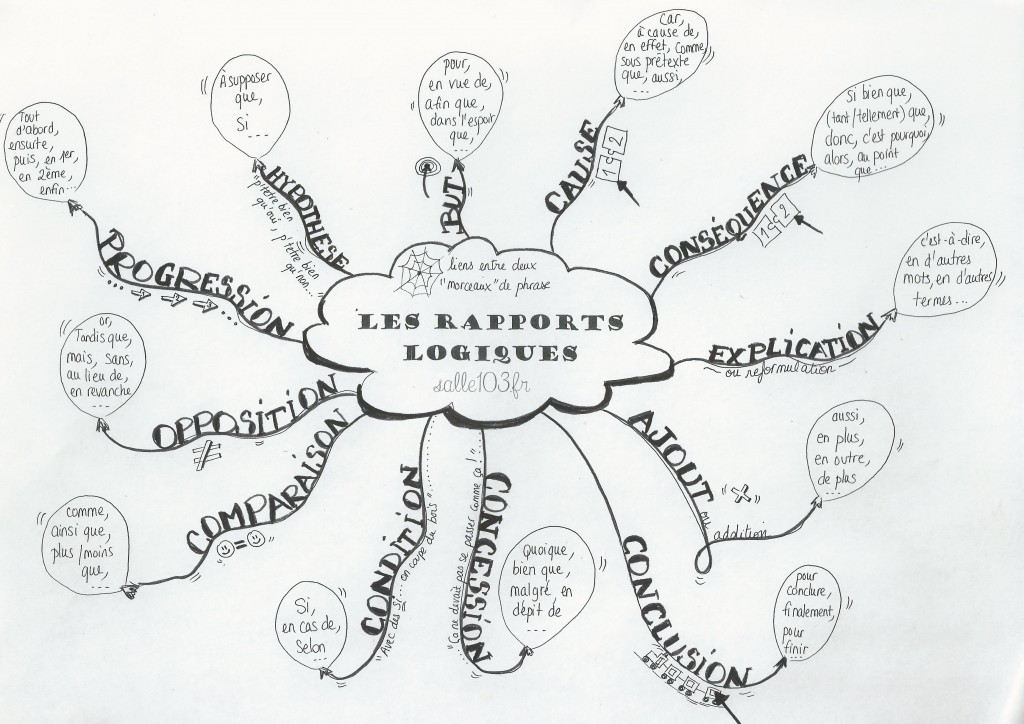 liens entre deux
"morceaux" de phrase
LES RAPPORTS
LOGIQUES
salle103fr
CAUSE
1 2
Car,
à cause de,
en effet, Comme,
sous prétexte
que, aussi,
...
CONSÉQUENCE
1 2
Si bien que,
(tant/tellement) que,
donc, c'est pourquoi,
alors, au point
que...
EXPLICATION
ou reformulation
c'est-à-dire,
en d'autres
mots, en d'autres
termes...
AJOUT ou
addition
aussi,
en plus,
en outre,
de plus
...
CONCLUSION
pour
conclure,
finalement,
pour
finir
...
CONCESSION
"Ça ne devait pas se passer comme ça !"
Quoique,
bien que,
malgré, en
dépit de
...
CONDITION
"Avec des Si... on coupe du bois"
Si,
en cas de,
Selon
...
COMPARAISON
=
comme,
ainsi que,
plus/moins
que,
...
OPPOSITION
≠
or,
Tandis que,
mais, sans,
au lieu de,
en revanche
...
PROGRESSION
... ...
Tout
d'abord,
ensuite,
puis, en 1er,
en 2ème,
enfin...
HYPOTHESE
"p'têtre bien
qu'oui, p'têtre bien
qu'non..."
À supposer
que,
Si
...
BUT
pour,
en vue de,
afin que,
dans l'espoir
que,
...